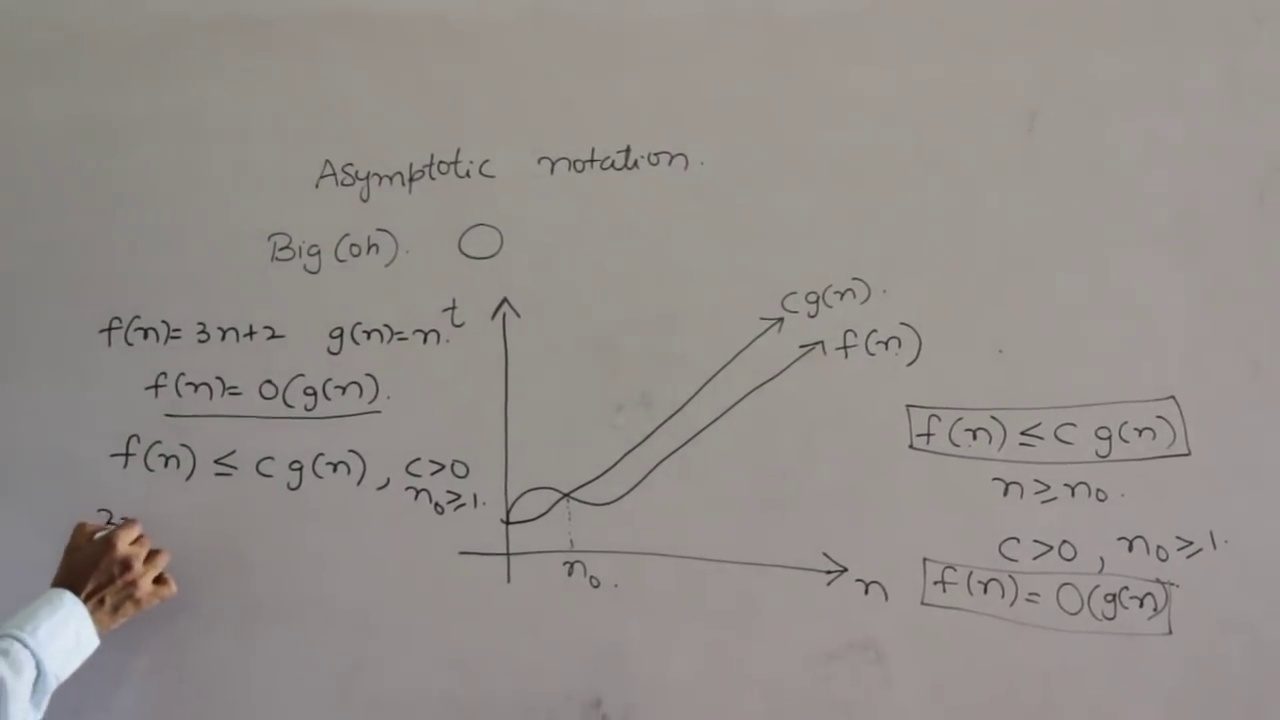 Asymptotic notation.
Big (oh). O
t
f(n)= 3n+2 g(n)=n.
f(n)= O(g(n).
f(n) ≤ c g(n), c>0
n₀≥1.
cg(n).
f(n)
n₀.
n
f(n) ≤ c g(n)
n≥n₀.
c>0, n₀≥1.
f(n)= O(g(n)